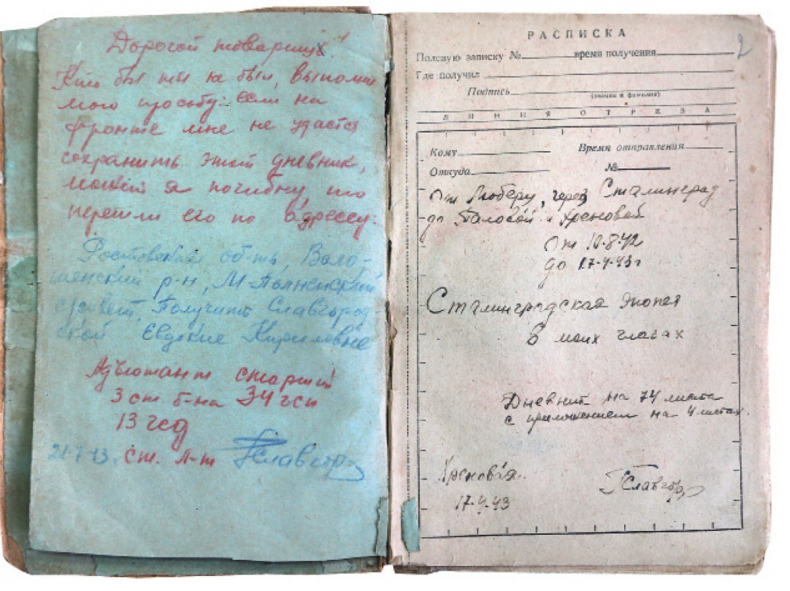 Дорогой товарищ!
Кто бы ты не был, выполни
мою просьбу: если на
фронте мне не удастся
сохранить этот дневник,
может я погибну, то
перешли его по адрессу:
Ростовская об-ть, Воло-
шенский р-н, М-Полненский
с/совет, Получить Славгород
ской Евдокие Кириловне
Адъютант старший
3 стр. б-на 34 гсп
13 гсд
21.7.43. ст. л-т ГСлавгор
2
РАСПИСКА
Полевую записку № время получения
Где получил
Подпись
(звание и фамилия)
ЛИНИЯ ОТРЕЗА
Кому Время отправления
Откуда №
От Люберц, через Сталинград
до Таловой и Хреновой
От 10-8-42
до 17-4-43г
Сталинградская эпопея
в моих глазах
Дневник на 74 листа
с приложением на 4 листах.
Хреновая.
17.4.43
ГСлавгор